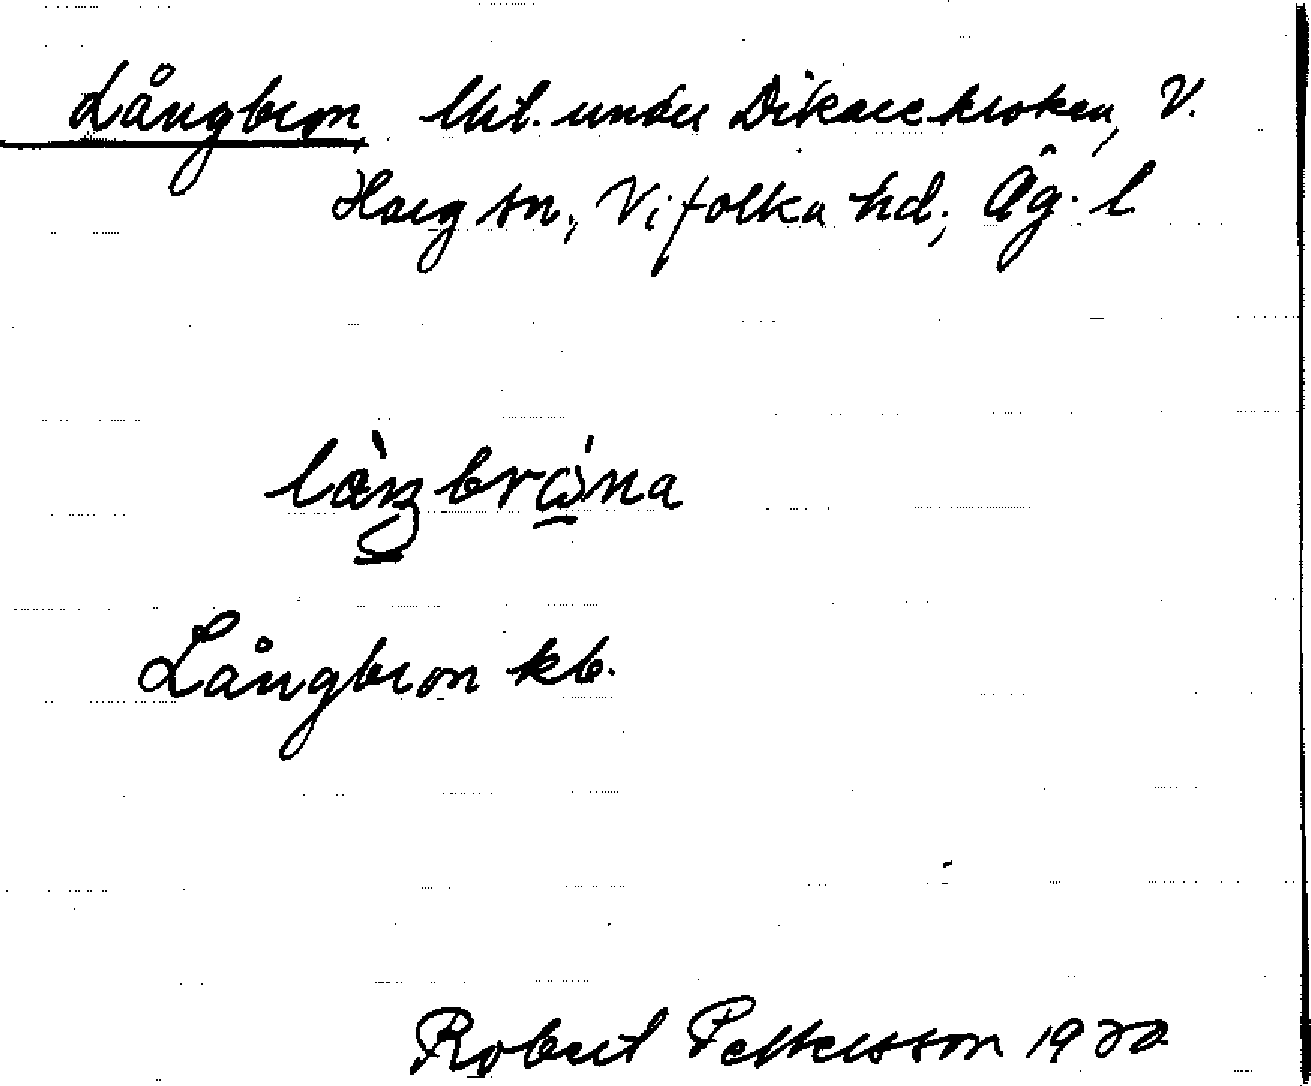 Långbron Utj. under Dikarekroken, V.
Harg sn, Vifolka hd, Ög. l
Långbron kb.
Robert Pettersson 1922